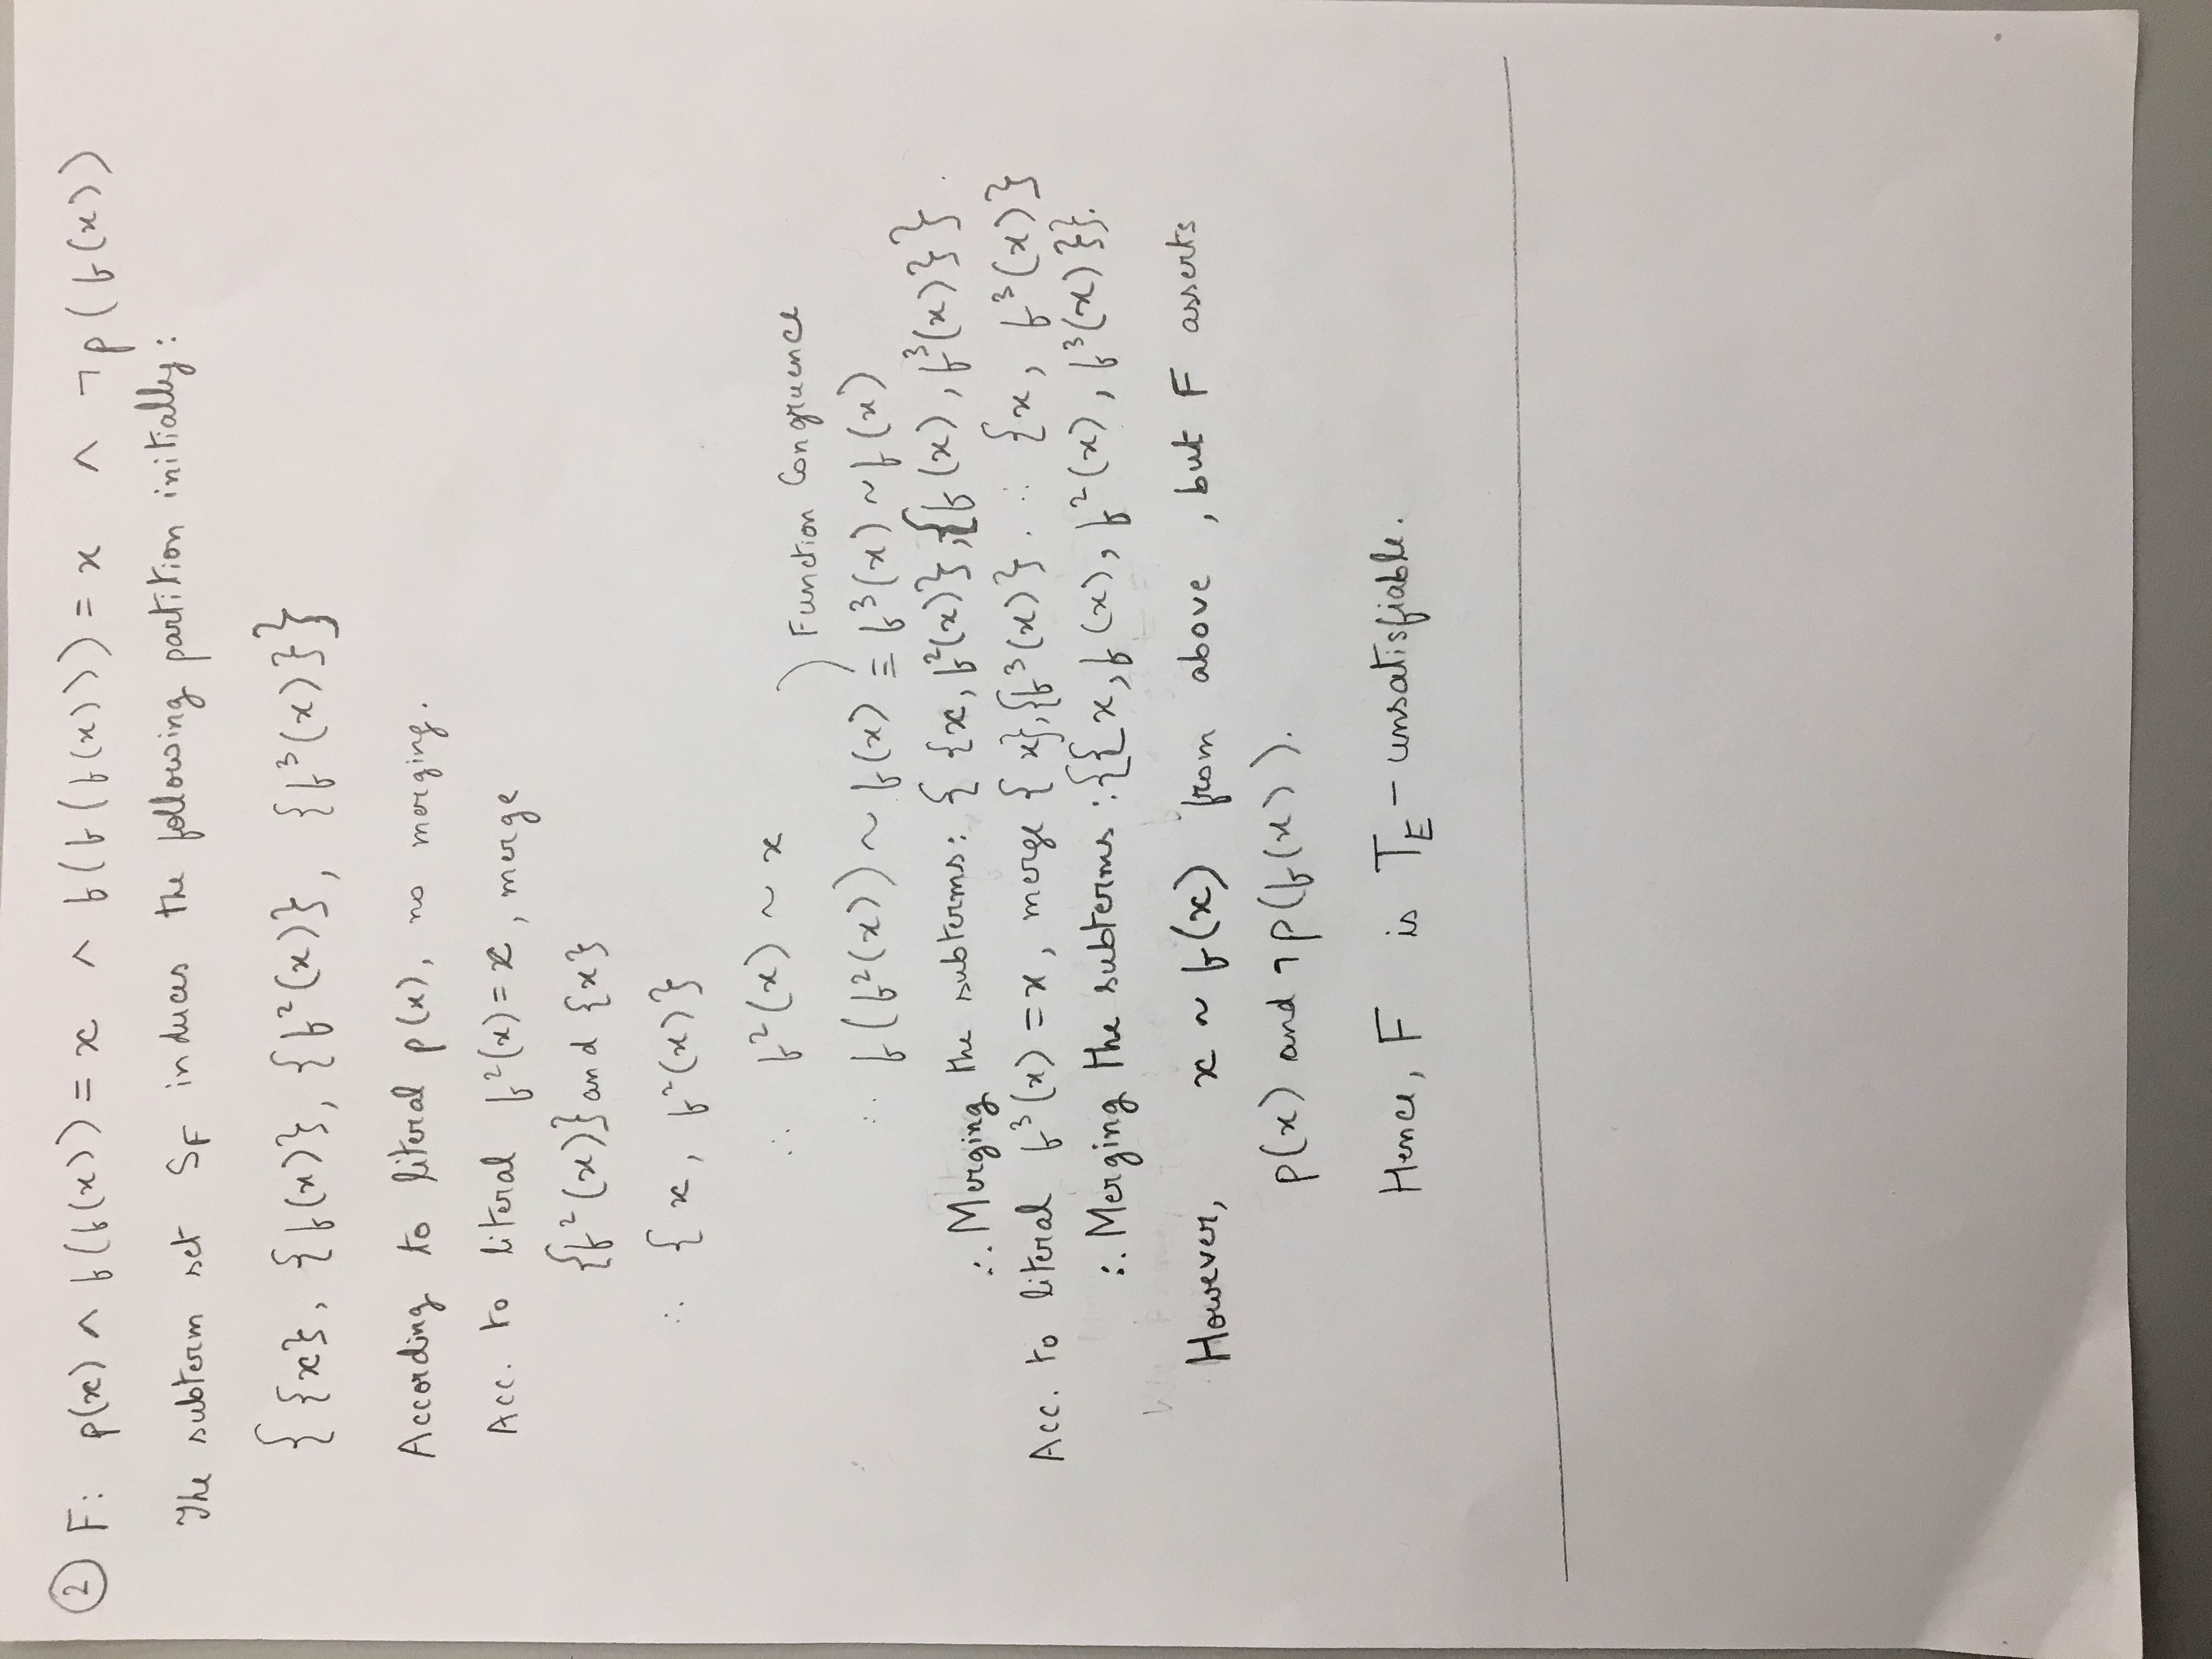 ② F: p(x) ∧ f(f(x)) = x ∧ f(f(f(x))) = x ∧ ¬p(f(x))
The subterm set S_F induces the following partition initially:
{ {x}, {f(x)}, {f²(x)}, {f³(x)}}
According to literal p(x), no merging.
Acc. to literal f²(x) = x, merge
{f²(x)} and {x}
∴ { x, f²(x)}
∴ f²(x) ~ x
) Function Congruence
∴ f(f²(x)) ~ f(x) ≡ f³(x) ~ f(x)
∴ Merging the subterms: { {x, f²(x)}, {f(x), f³(x)} }.
Acc. to literal f³(x) = x, merge {x}, {f³(x)}. ∴ {x, f³(x)}
∴ Merging the subterms : {{x, f(x), f²(x), f³(x)}}.
However, x ~ f(x) from above, but F asserts
p(x) and ¬p(f(x)).
Hence, F is T_E - unsatisfiable.